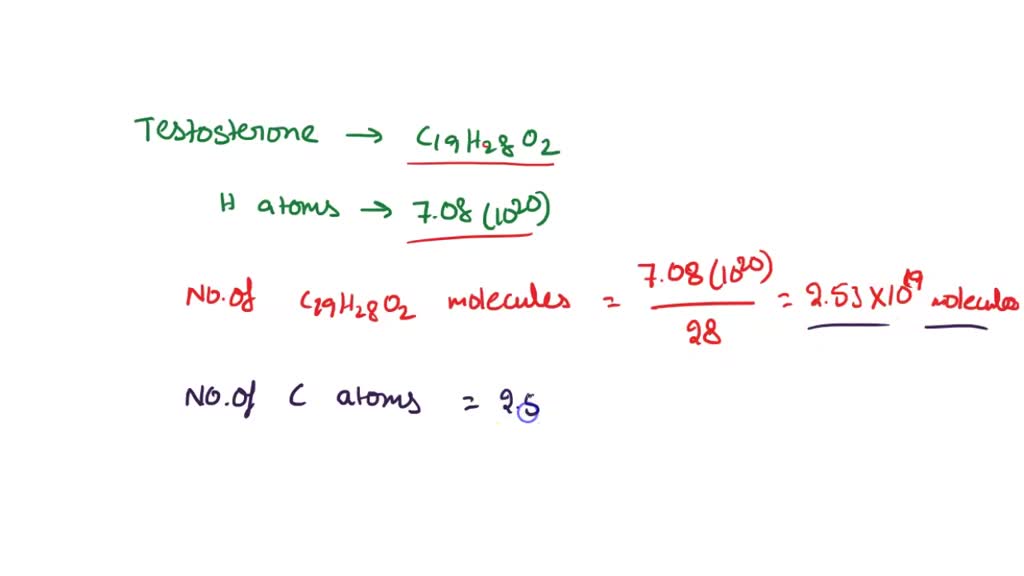 Testosterone → C19H28O2
H atoms → 7.08 (10²⁰)
No. of C19H28O2 molecules = 7.08 (10²⁰) / 28 = 2.53 × 10¹⁹ molecules
No. of C atoms = 2.5